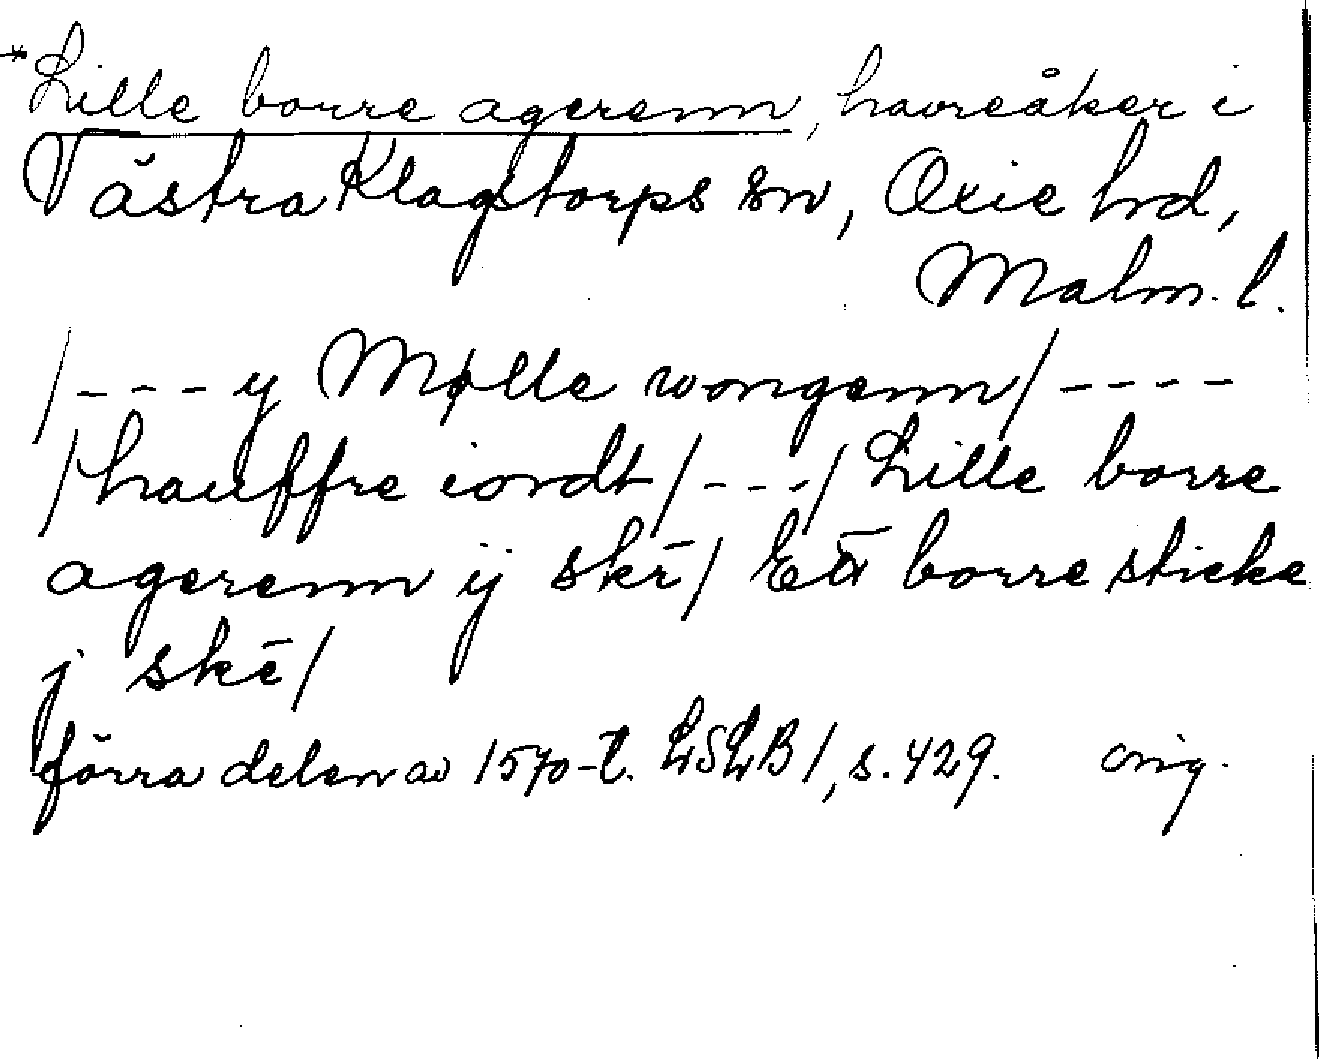 *Lille borre agerenn, havreåker i
Västra Klagstorps sn, Oxie hd,
Malm. l.
/--- y Mølle wongenn/----
/hauffre iordt/---/ Lille borre
agerenn ij skē/ Ett borre sticke
j skē/
förra delen av 1570-t. LSLB 1, s. 429. orig.